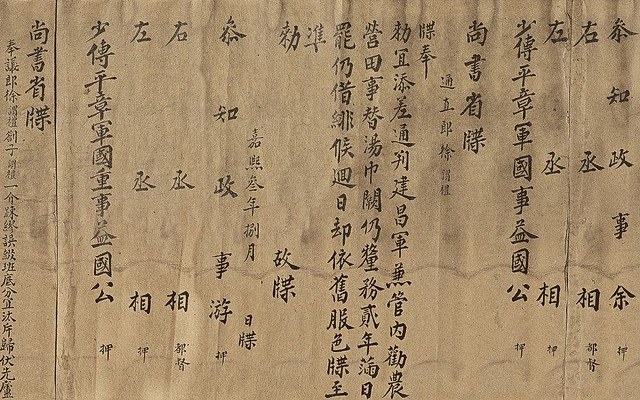 叅知政事余
右丞相 都督
左丞相 押
少傅平章軍國事益國公 押
尚書省牒
通直郎徐謂禮
牒奉
勑宜添差通判建昌軍兼管内勸農
營田事替湯巾闕仍釐務貳年滿日
罷仍借緋候迴日却依舊服色牒至
準
勑 故牒
嘉熙叁年捌月 日牒
叅知政事游 押
右丞相 都督
左丞相 押
少傅平章軍國重事益國公 押
尚書省牒
奉議郎徐謂禮劄子謂禮一介踈繆誤綴班底分宜汰斥歸伏先廬